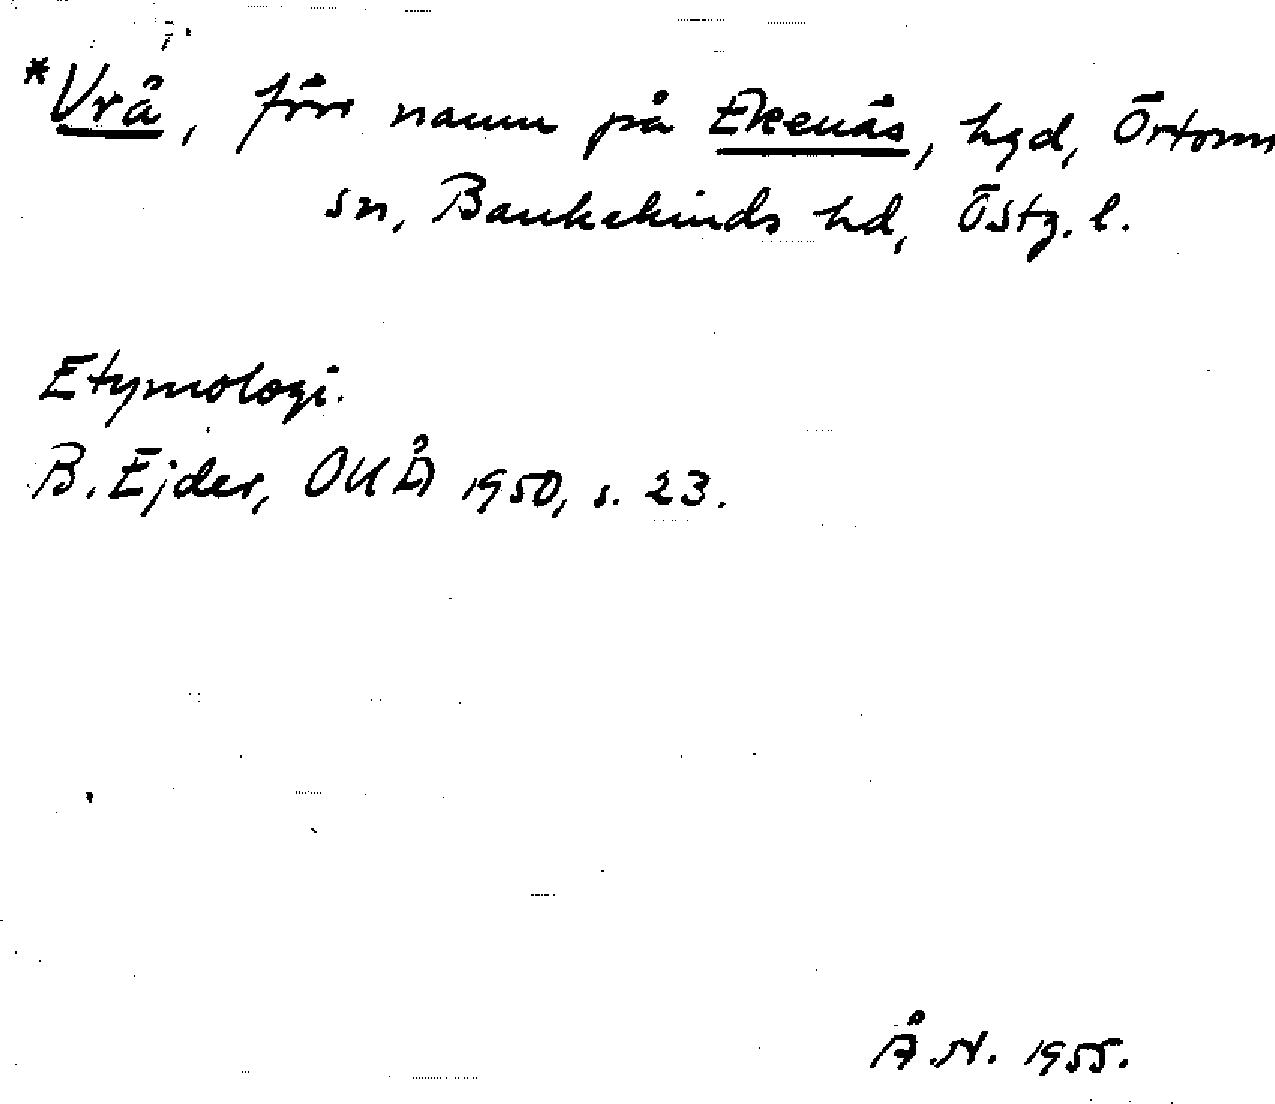 *Vrå, förr namn på Ekenäs, hgd, Örtomta
sn, Bankekinds hd, Östg. l.
Etymologi.
B. Ejder, OUÅ 1950, s. 23.
Å.N. 1955.